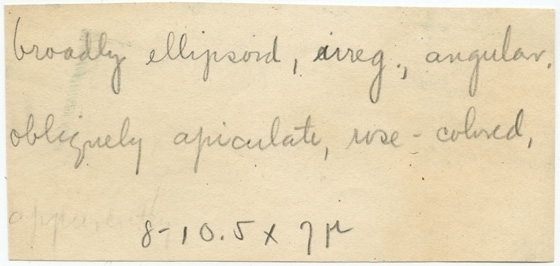 broadly ellipsoid, irreg., angular,
obliquely apiculate, rose-colored,
apparently
8-10.5 x 7 µ